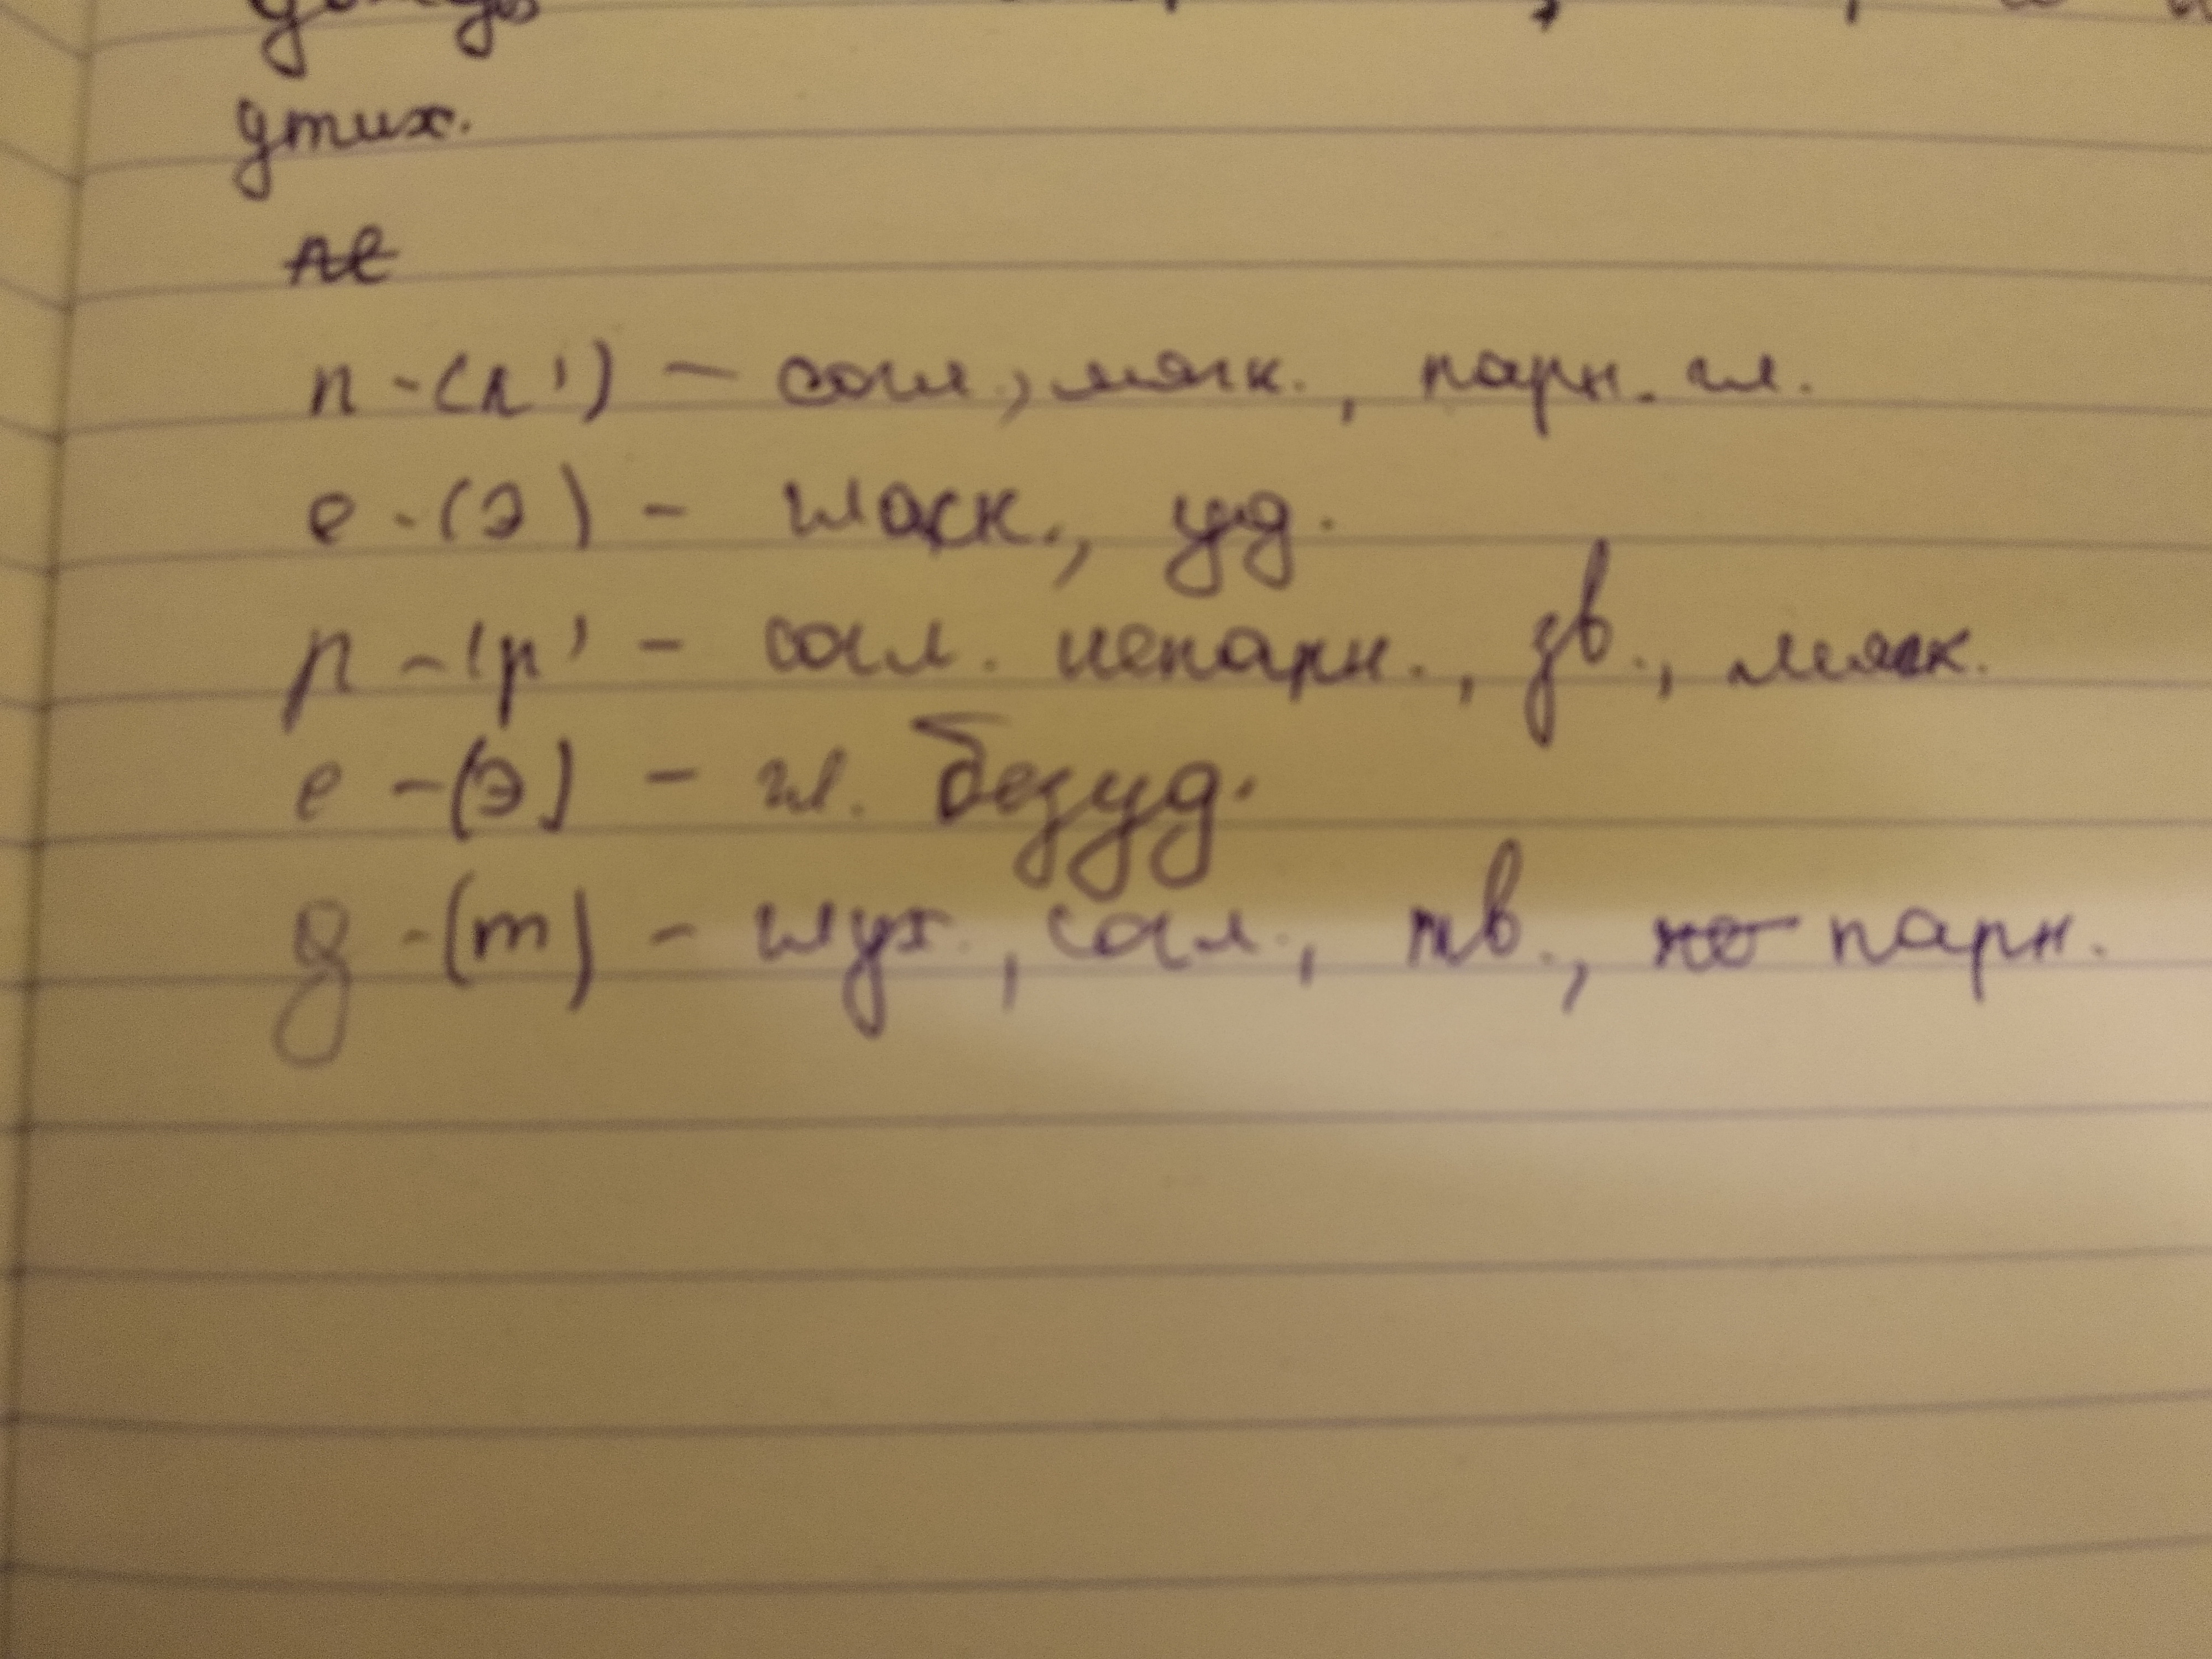 утих.
п - (п') - согл., мягк., парн. гл.
е - (э) - гласн., уд.
р - (р' - согл. непарн., зв., мягк.
е - (э) - гл. безуд.
д - (т) - глух., согл., тв., парн.